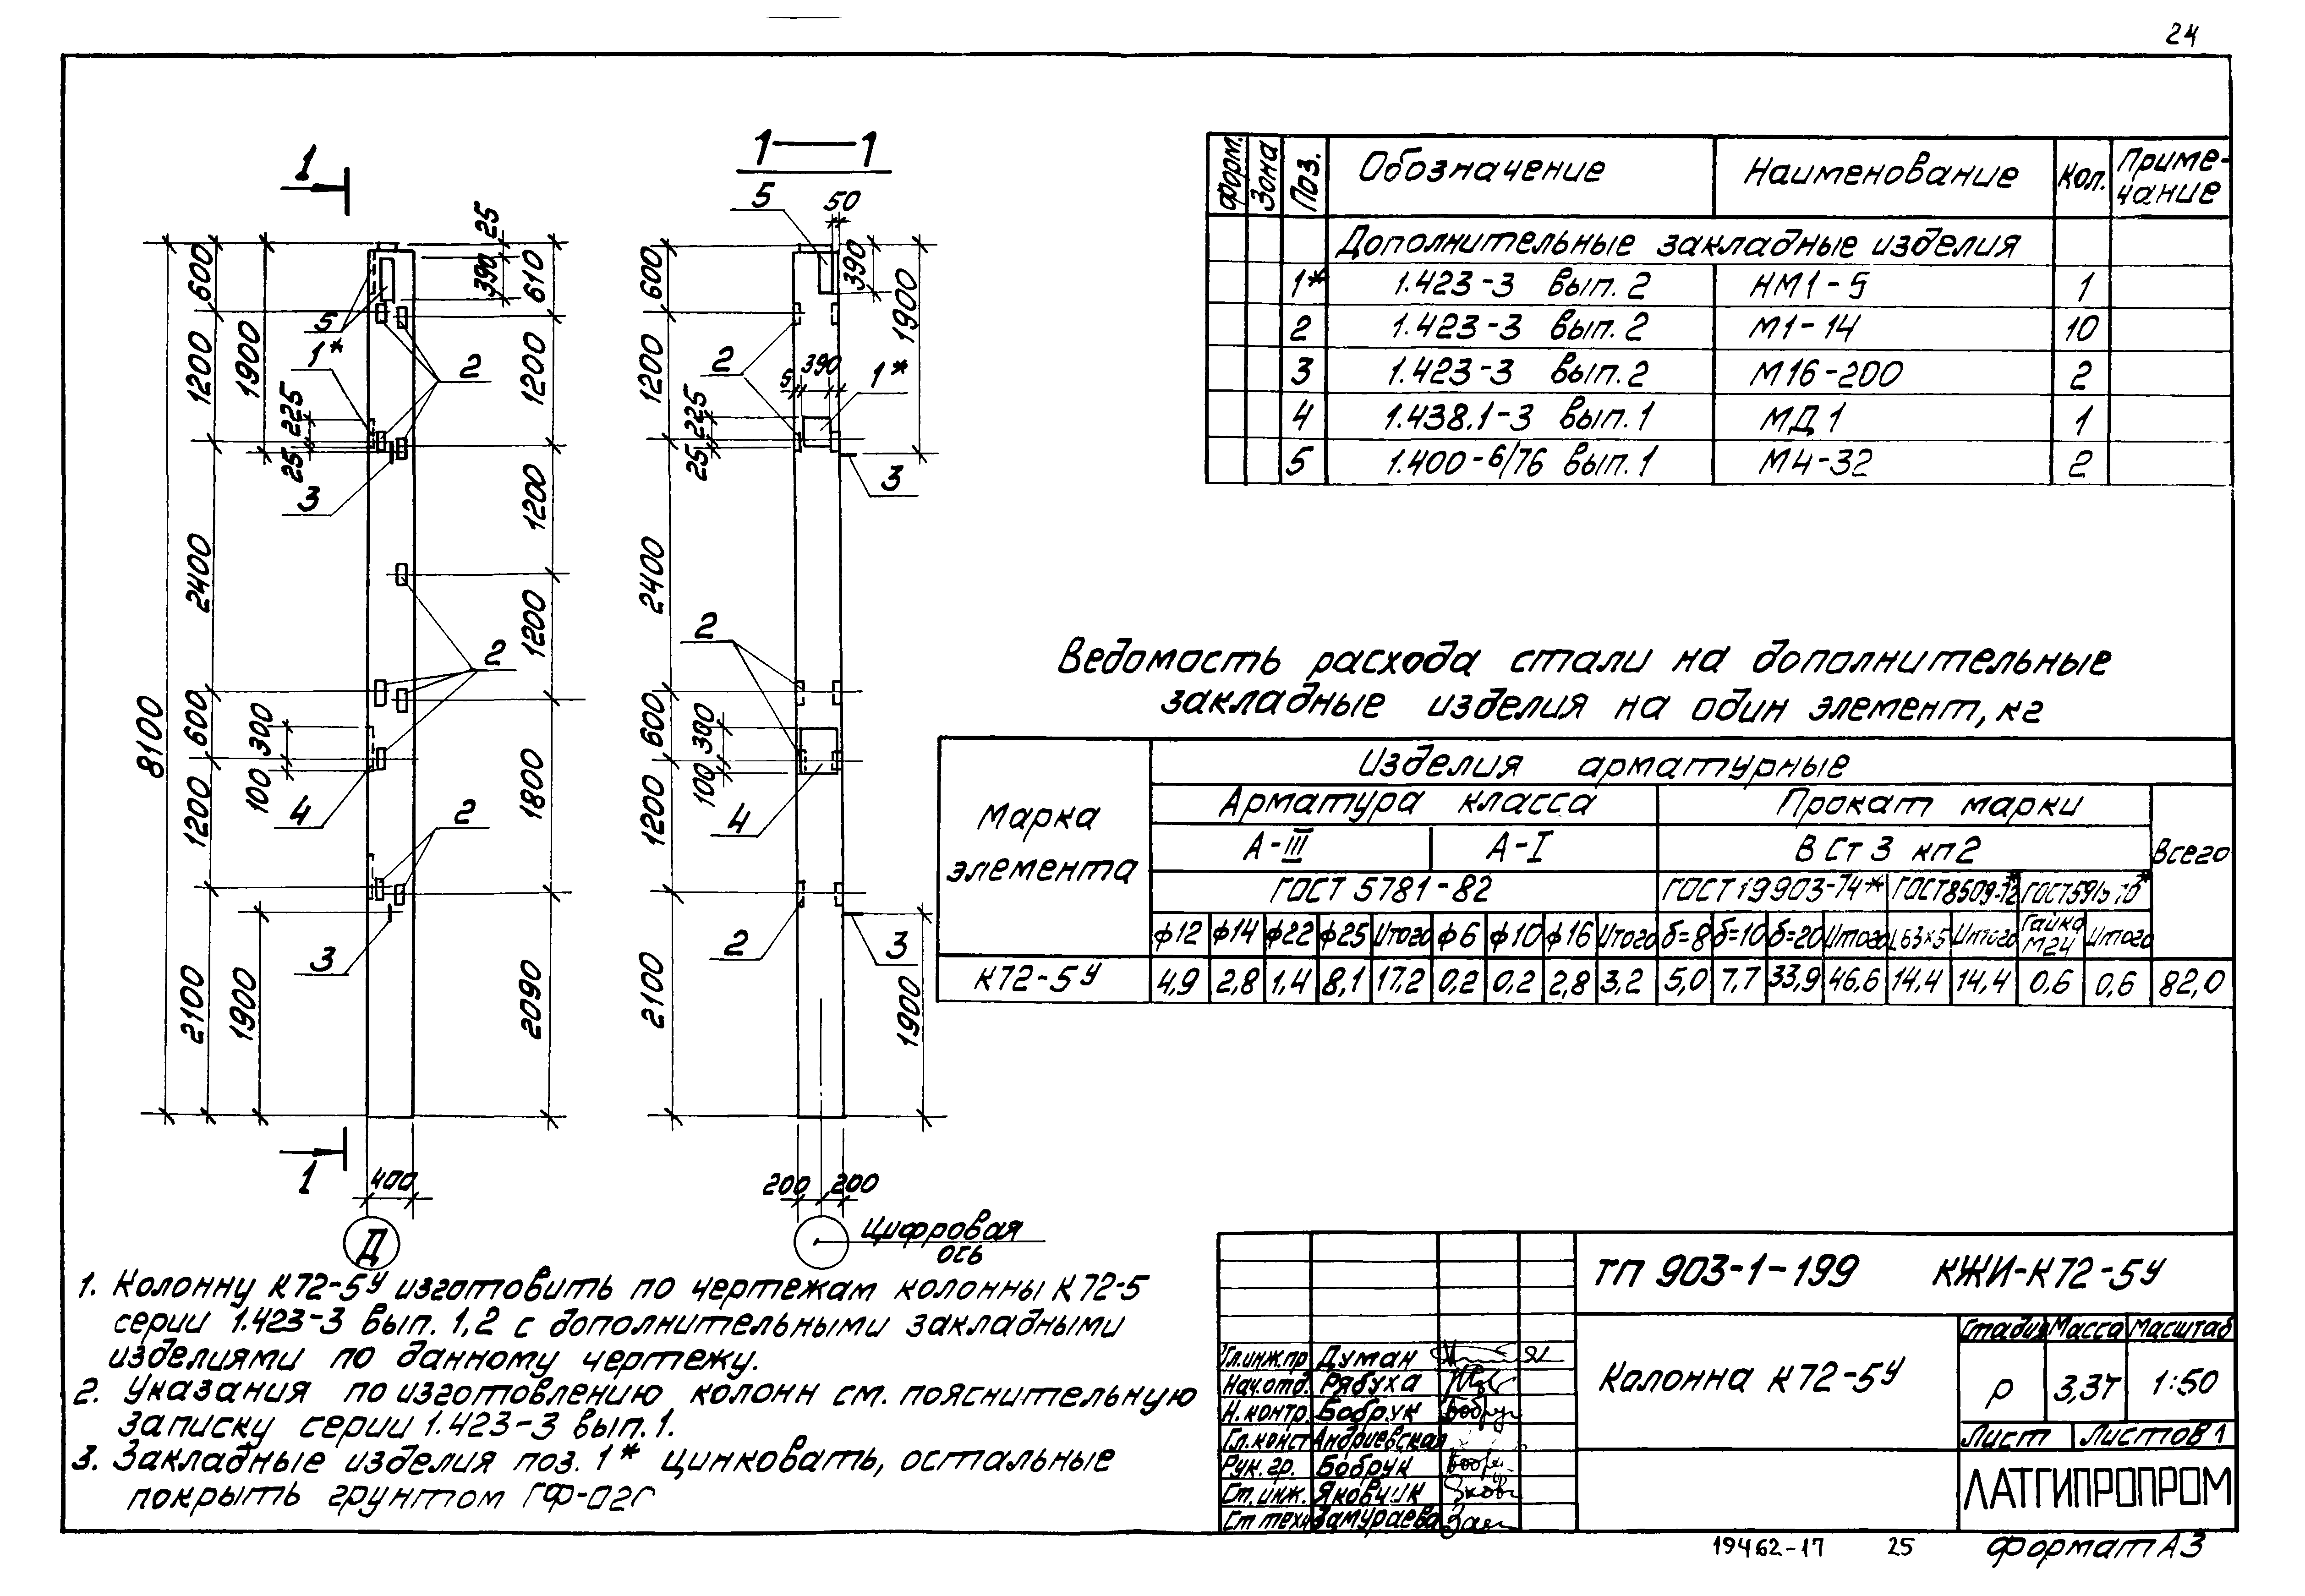 24
1
1—1
5
50
25
390
600
610
1200
1900
5
1*
2
225
25
3
2400
1200
1200
2
8100
600
300
100
4
1200
1800
2
3
2100
1900
2090
1
400
Д
600
390
1900
1200
2
5
390
1*
225
25
3
2400
2
600
300
100
4
1200
2
3
2100
1900
200
200
Цифровая
ось
форм.
Зона
Поз.
Обозначение
Наименование
Кол.
Приме-
чание
Дополнительные закладные изделия
1* 1.423-3 вып. 2 НМ1-5 1
2 1.423-3 вып. 2 М1-14 10
3 1.423-3 вып. 2 М16-200 2
4 1.438.1-3 вып. 1 МД1 1
5 1.400-6/76 вып. 1 М4-32 2
Ведомость расхода стали на дополнительные
закладные изделия на один элемент, кг
Марка
элемента
Изделия арматурные
Арматура класса
Прокат марки
Всего
А-III
А-I
В Ст 3 кп2
ГОСТ 5781-82
ГОСТ 19903-74*
ГОСТ8509-72*
ф12 ф14 ф22 ф25 Итого ф6 ф10 ф16 Итого б=8 б=10 б=20 Итого L63×5 Итого Гайка М24 Итого
К72-5У 4,9 2,8 1,4 8,1 17,2 0,2 0,2 2,8 3,2 5,0 7,7 33,9 46,6 14,4 14,4 0,6 0,6 82,0
1. Колонну К72-5У изготовить по чертежам колонны К72-5
серии 1.423-3 вып. 1,2 с дополнительными закладными
изделиями по данному чертежу.
2. Указания по изготовлению колонн см. пояснительную
записку серии 1.423-3 вып. 1.
3. Закладные изделия поз. 1* цинковать, остальные
покрыть грунтом
ТП 903-1-199 КЖИ-К72-5У
Колонна К72-5У
Стадия Масса Масштаб
Р 3,3т 1:50
Лист Листов 1
Гл.инж.пр Думан
Нач.отд. Рябуха
Н.контр. Бобрук
Гл.конст Андриевская
Рук.гр. Бобрук
Ст.инж. Яковчик
Ст техн Замураева
ЛАТГИПРОПРОМ
19462-17 25 Формат А3